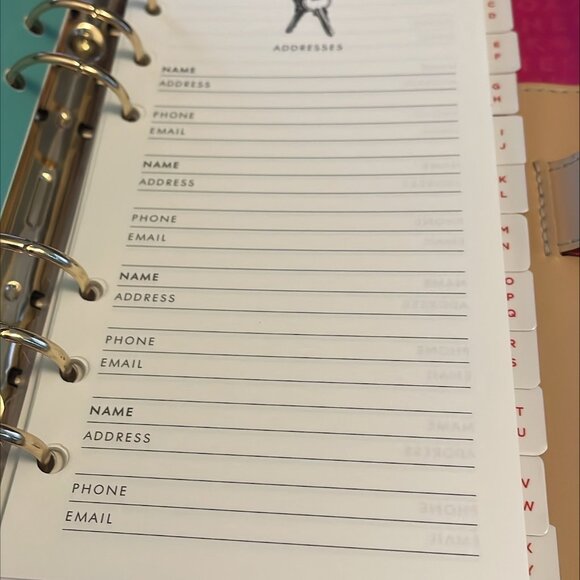 ADDRESSES
NAME
ADDRESS
PHONE
EMAIL
NAME
ADDRESS
PHONE
EMAIL
NAME
ADDRESS
PHONE
EMAIL
NAME
ADDRESS
PHONE
EMAIL
C
D
E
F
G
H
I
J
K
L
M
N
O
P
Q
R
S
T
U
V
W
X
Y